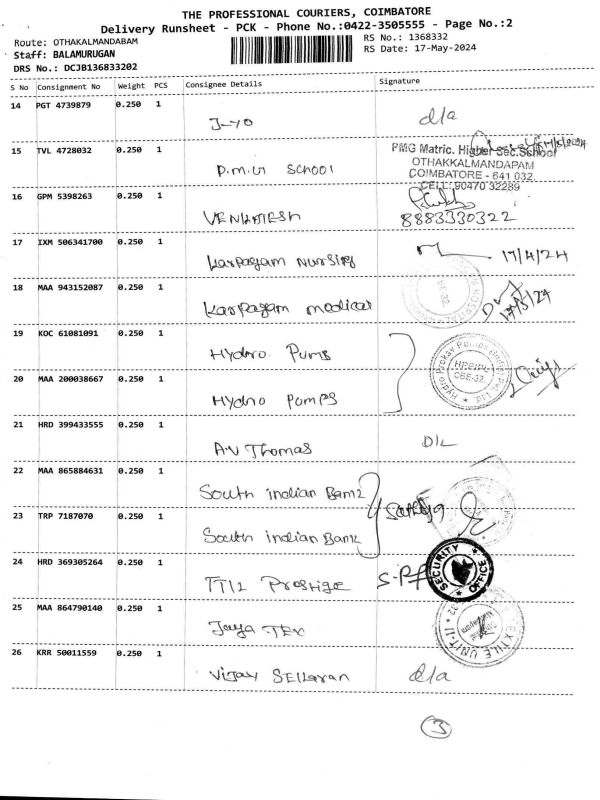 THE PROFESSIONAL COURIERS, COIMBATORE
Delivery Runsheet - PCK - Phone No.:0422-3505555 - Page No.:2
Route: OTHAKALMANDABAM
RS No.: 1368332
Staff: BALAMURUGAN
RS Date: 17-May-2024
DRS No.: DCJB136833202
S No Consignment No Weight PCS Consignee Details Signature
14 PGT 4739879 0.250 1
d/a
15 TVL 4728032 0.250 1
P.M.G School
PMG Matric. Higher Sec.School
OTHAKKALMANDAPAM
COIMBATORE - 641 032
CELL: 90470 32289
16 GPM 5398263 0.250 1
VENKATESH
8883330322
17 IXM 506341700 0.250 1
karpagam Nursing
17/4/24
18 MAA 943152087 0.250 1
karpagam medical
17/5/24
19 KOC 61081091 0.250 1
Hydro Pums
20 MAA 200038667 0.250 1
Hydro Pomps
HPPIPL
CBE-32.
21 HRD 399433555 0.250 1
A.V Thomas
D/L
22 MAA 865884631 0.250 1
South indian Bank
23 TRP 7187070 0.250 1
South indian Bank
24 HRD 369305264 0.250 1
TTK Prestige
SECURITY OFFICE
25 MAA 864790140 0.250 1
Jaya Tex
TEXTILE UNIT-II
26 KRR 50011559 0.250 1
Vijay Sellaran
d/a
3